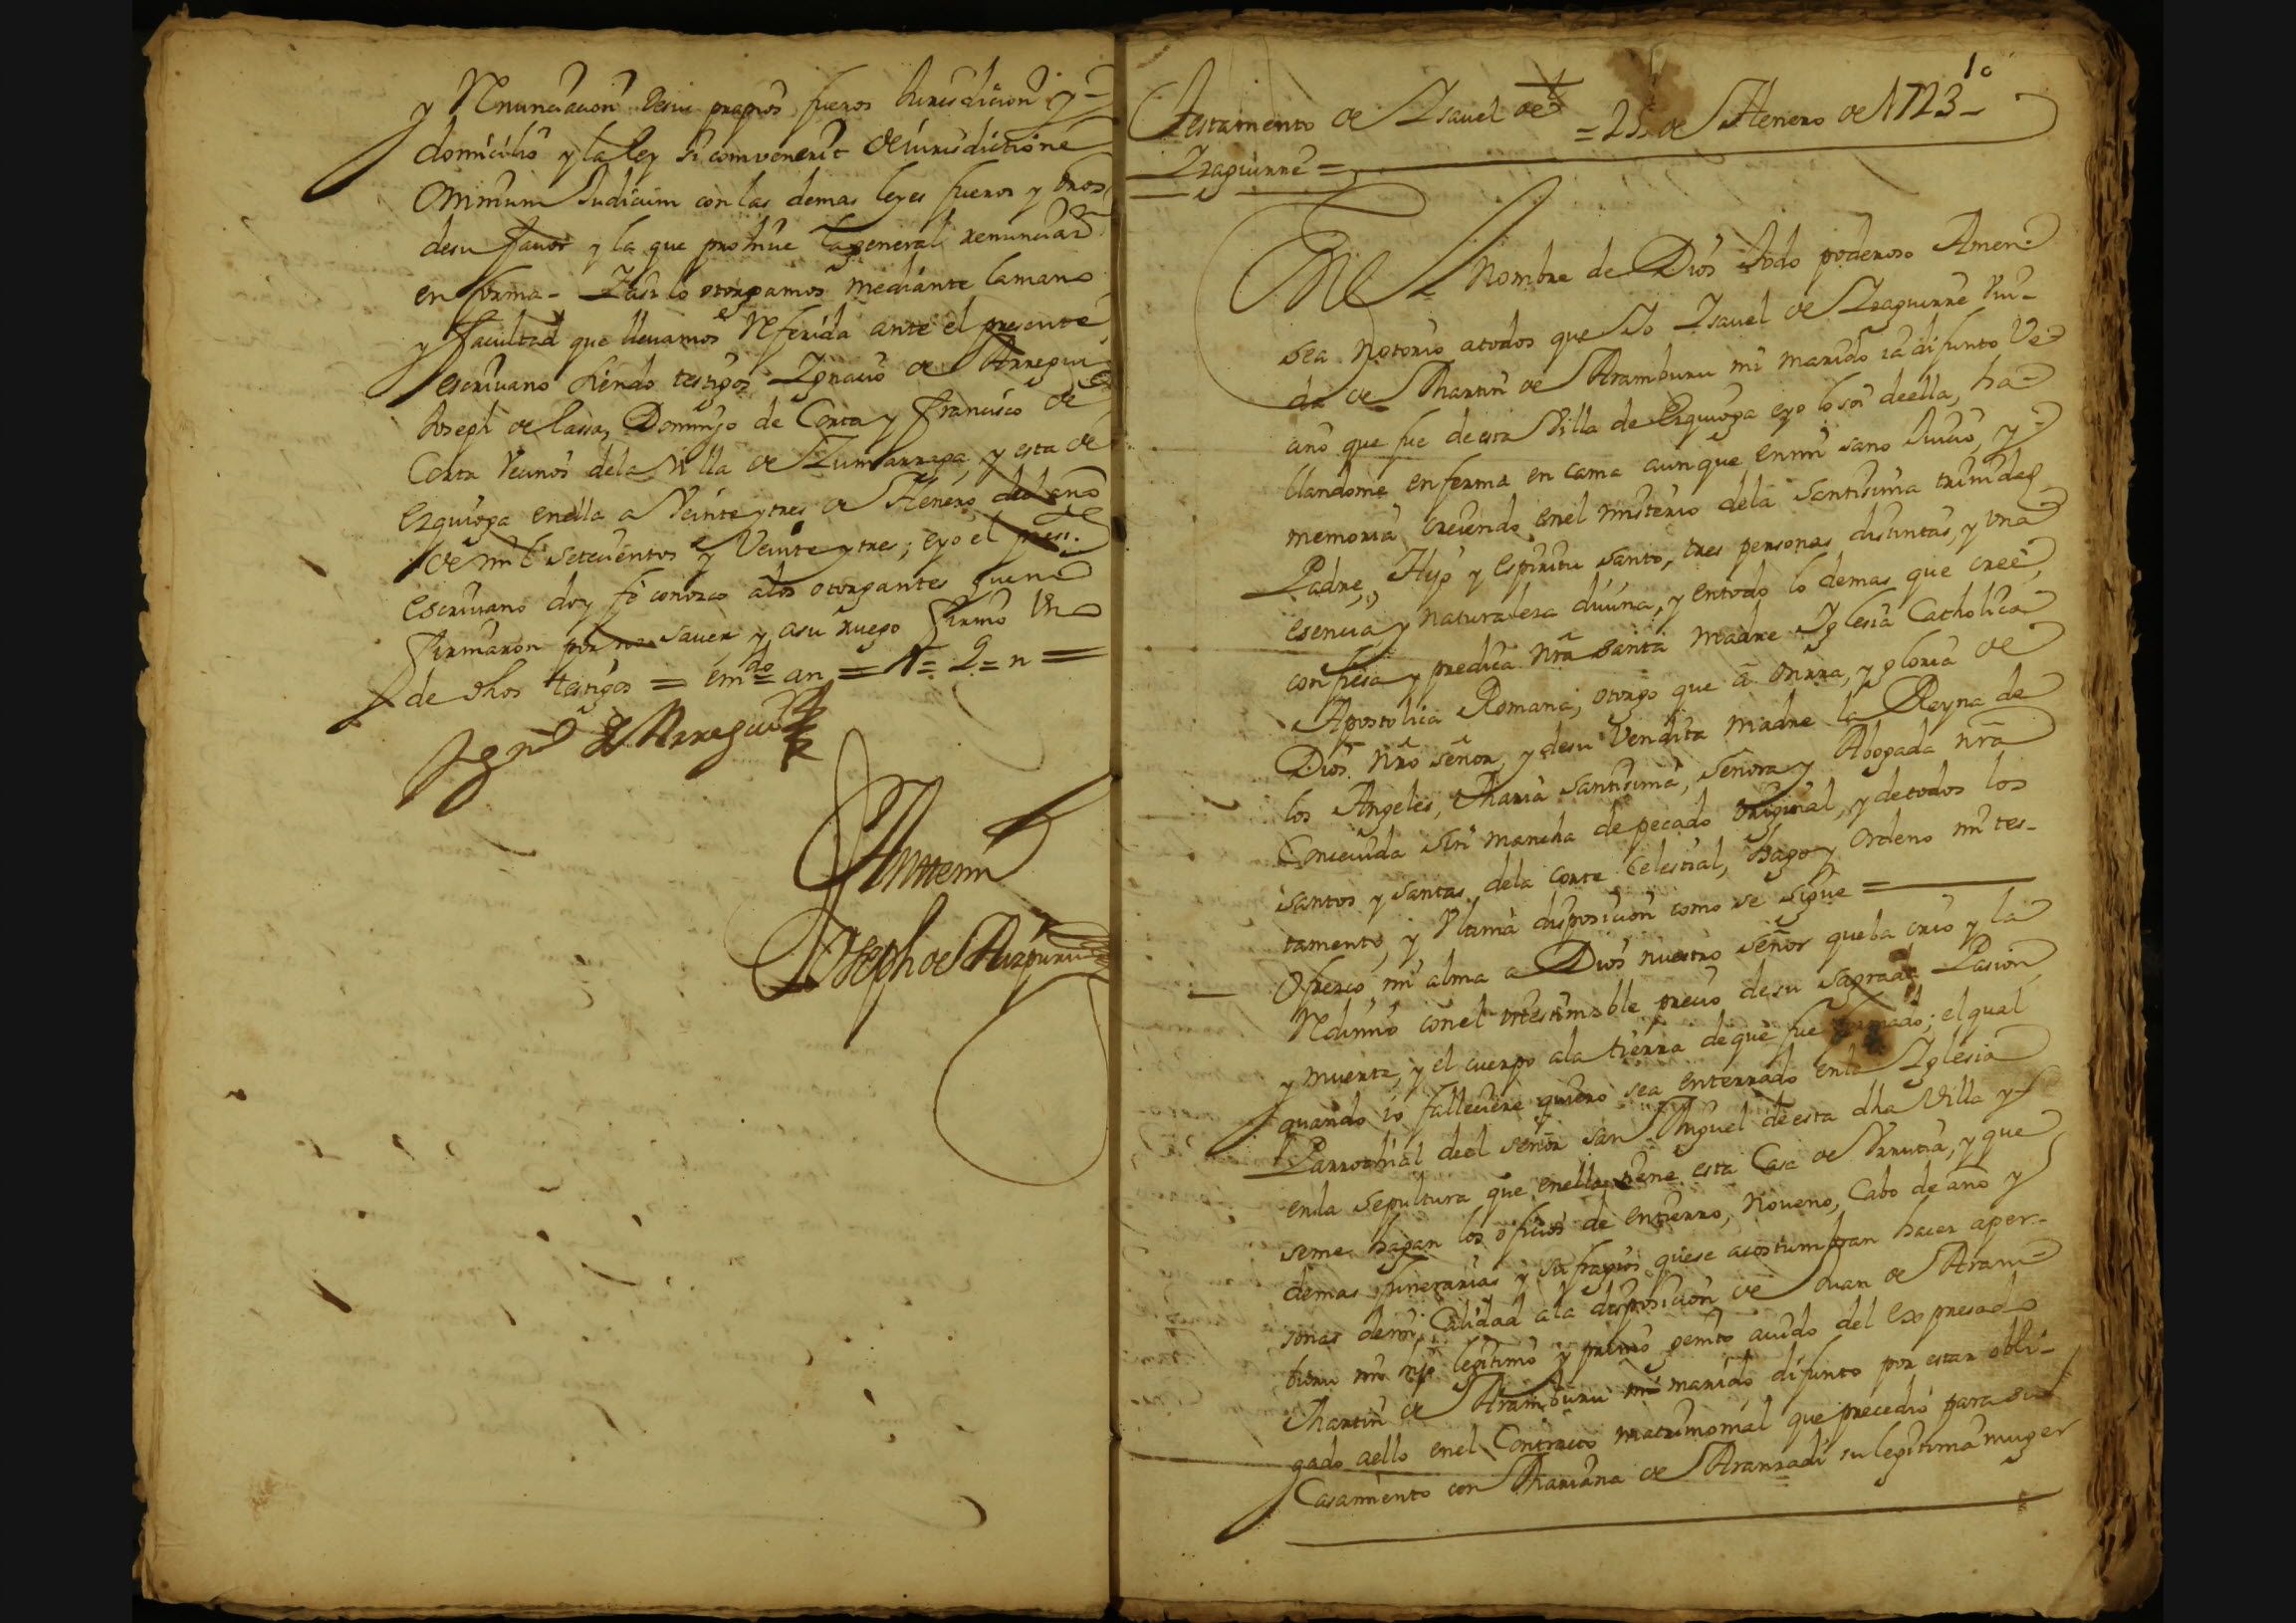 y Renunciacion desus propios fueros Jurisdicion y
domicilio y la ley si comvenerit de iurisdictione
omnium Judicum con las demas leyes fueros y dros
desu favor y la que prohive la general renunciaon
en forma - Y asi lo otorgamos mediante la mano
y facultad que llevamos Referida ante el presente
escrivano siendo testigos Ygnacio de Arregui
Joseph de Lassa, Domingo de Corta y Francisco de
Corta Vecinos dela Villa de Zumarraga, y esta de
Ezquioga enella a Veinte y tres de Henero del año
de mil setecientos y Veinte y tres; e yo el press.te
escrivano doy fe conozco alos otorgantes que no
firmaron por no saver y asu ruego firmo Un
de dhos testigos = em.do = an =
Ygn.o de Arregui
Antemi
Joseph de Aizpuru
10
Testamento de Ysavel de = 25 de Henero de 1723 -
Yzaguirre =
En el Nombre de Dios todo poderoso Amen
sea notorio atodos que Yo Ysavel de Yzaguirre Viu-
da de Martin de Aramburu mi marido ia difunto Ve-
cino que fue de esta Villa de Ezquioga e yo lo soi de ella, ha-
llandome enferma en cama aunque en mi sano Juicio, y
memoria creiendo enel misterio dela santisima trinidad
Padre, Hijo y espiritu santo, tres personas distintas, y una
esencia y naturaleza divina, y entodo lo demas que cree,
confiesa y predica nrã santa madre Yglesia Catholica
Apostolica Romana; otorgo que a onrra, y gloria de
Dios nrõ señor, y desu Vendita madre la Reyna de
los Angeles, Maria santisima, señora y Abogada nrã
Conceuida sin mancha de pecado original, y detodos los
santos y santas dela corte celestial, hago y ordeno mi tes-
tamento, y Vltima disposicion como se sigue =
Ofrezco mi alma a Dios nuestro señor que la crio y la
Redimio conel inestimable precio desu sagrada Pasion
y muerte, y el cuerpo ala tierra de que fue formado; el qual
quando io falleciere quiero sea enterrado enla Yglesia
Parrochial deel señor san Miguel de esta dha Villa y
enla sepultura que enella tiene esta Casa de Vrrutia, y que
seme hagan los oficios de entierro, noveno, Cabo de año y
demas funerarias y sufragios quese acostumbran hacer aper-
sonas demi Calidad ala disposicion de Juan de Aram
buru mi hijo legitimo y primo genito avido del expresado
Martin de Aramburu mi marido difunto por estar obli-
gado aello enel Contrato matrimonial que precedio para su
Casamiento con Mariana de Aranzadi su legitima muger